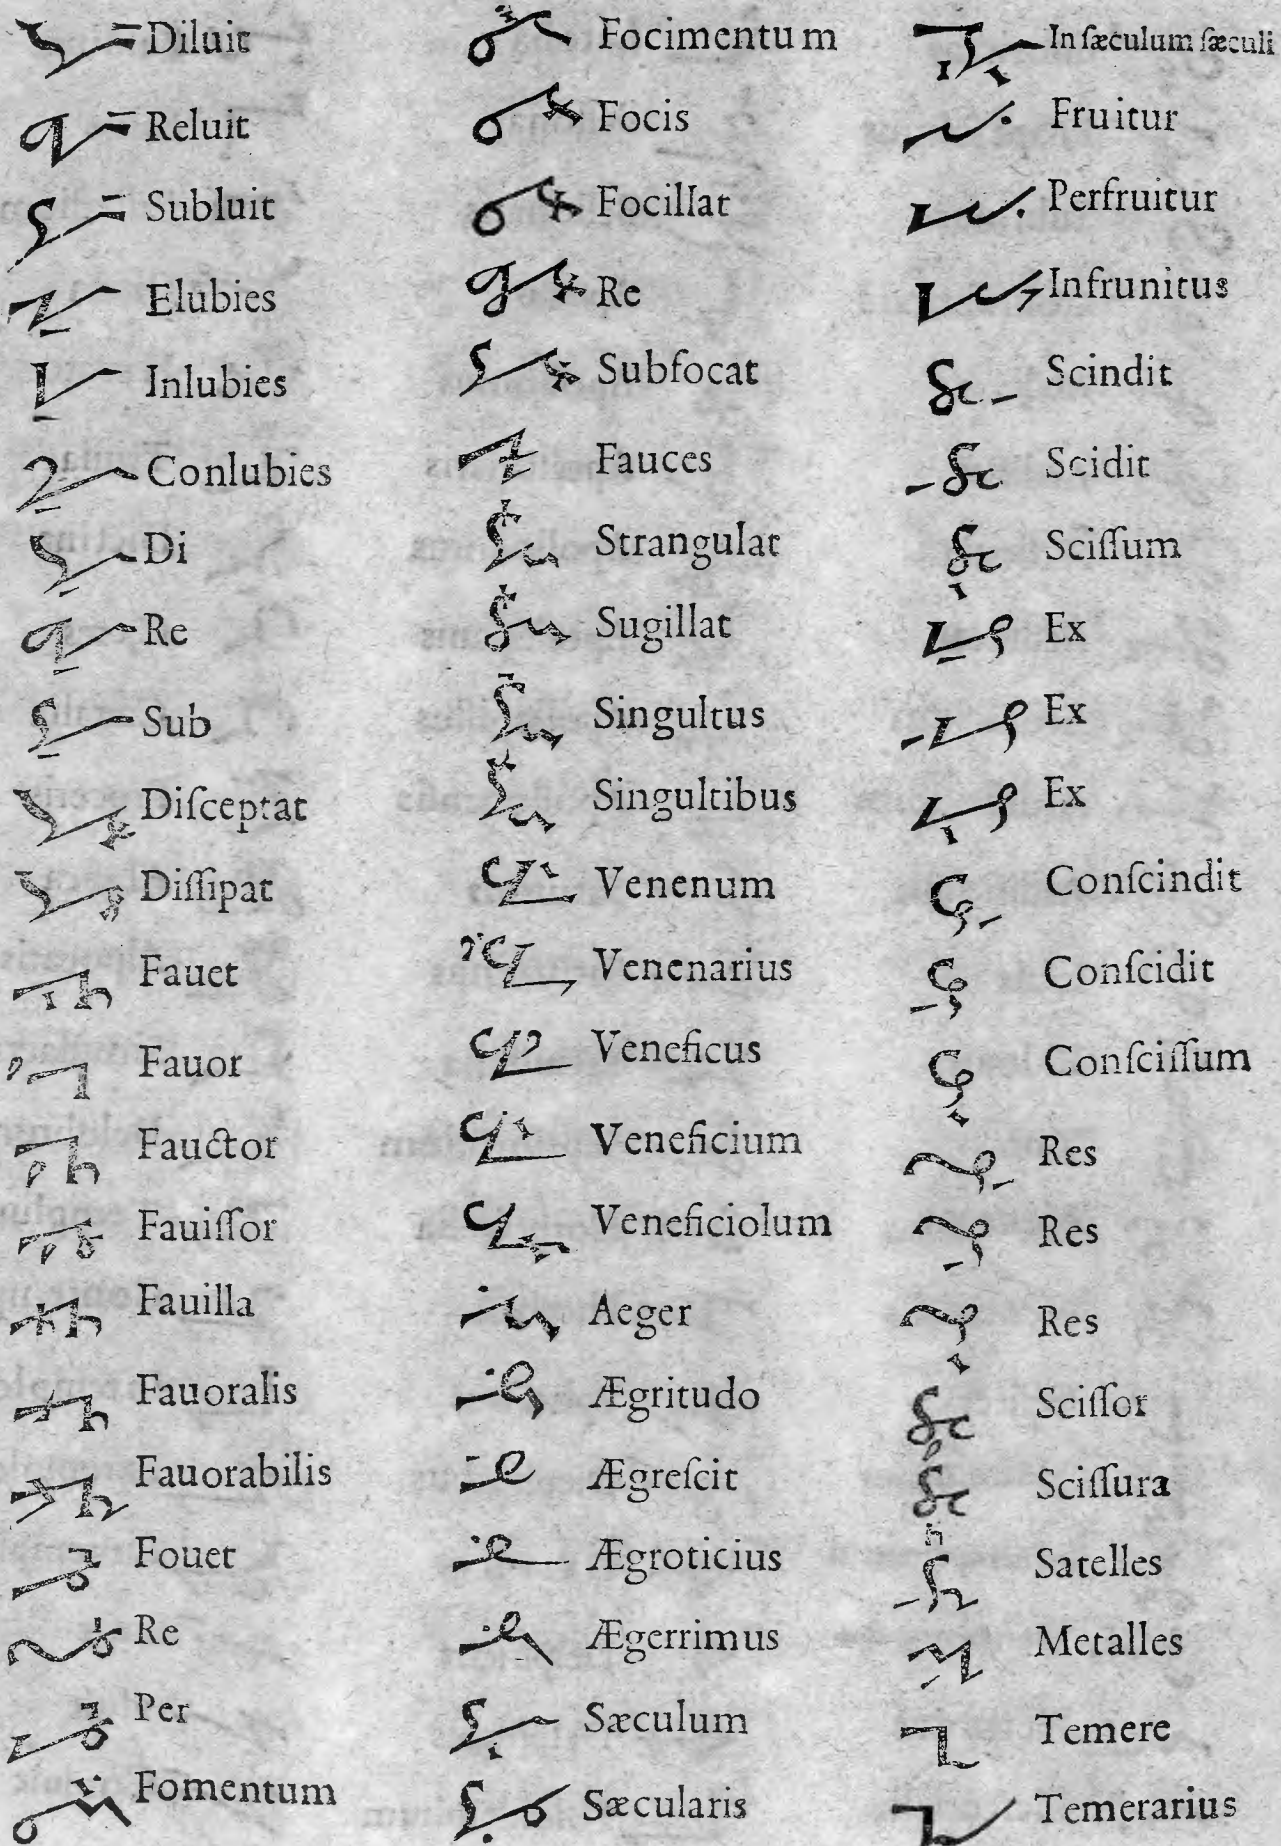 Diluit
Reluit
Subluit
Elubies
Inlubies
Conlubies
Di
Re
Sub
Diſceptat
Diſſipat
Fauet
Fauor
Fauctor
Fauiſſor
Fauilla
Fauoralis
Fauorabilis
Fouet
Re
Per
Fomentum
Focimentum
Focis
Focillat
Re
Subfocat
Fauces
Strangulat
Sugillat
Singultus
Singultibus
Venenum
Venenarius
Veneficus
Veneficium
Veneficiolum
Aeger
Ægritudo
Ægreſcit
Ægroticius
Ægerrimus
Sæculum
Sæcularis
In ſæculum ſæculi
Fruitur
Perfruitur
Infrunitus
Scindit
Scidit
Sciſſum
Ex
Ex
Ex
Conſcindit
Conſcidit
Conſciſſum
Res
Res
Res
Sciſſor
Sciſſura
Satelles
Metalles
Temere
Temerarius